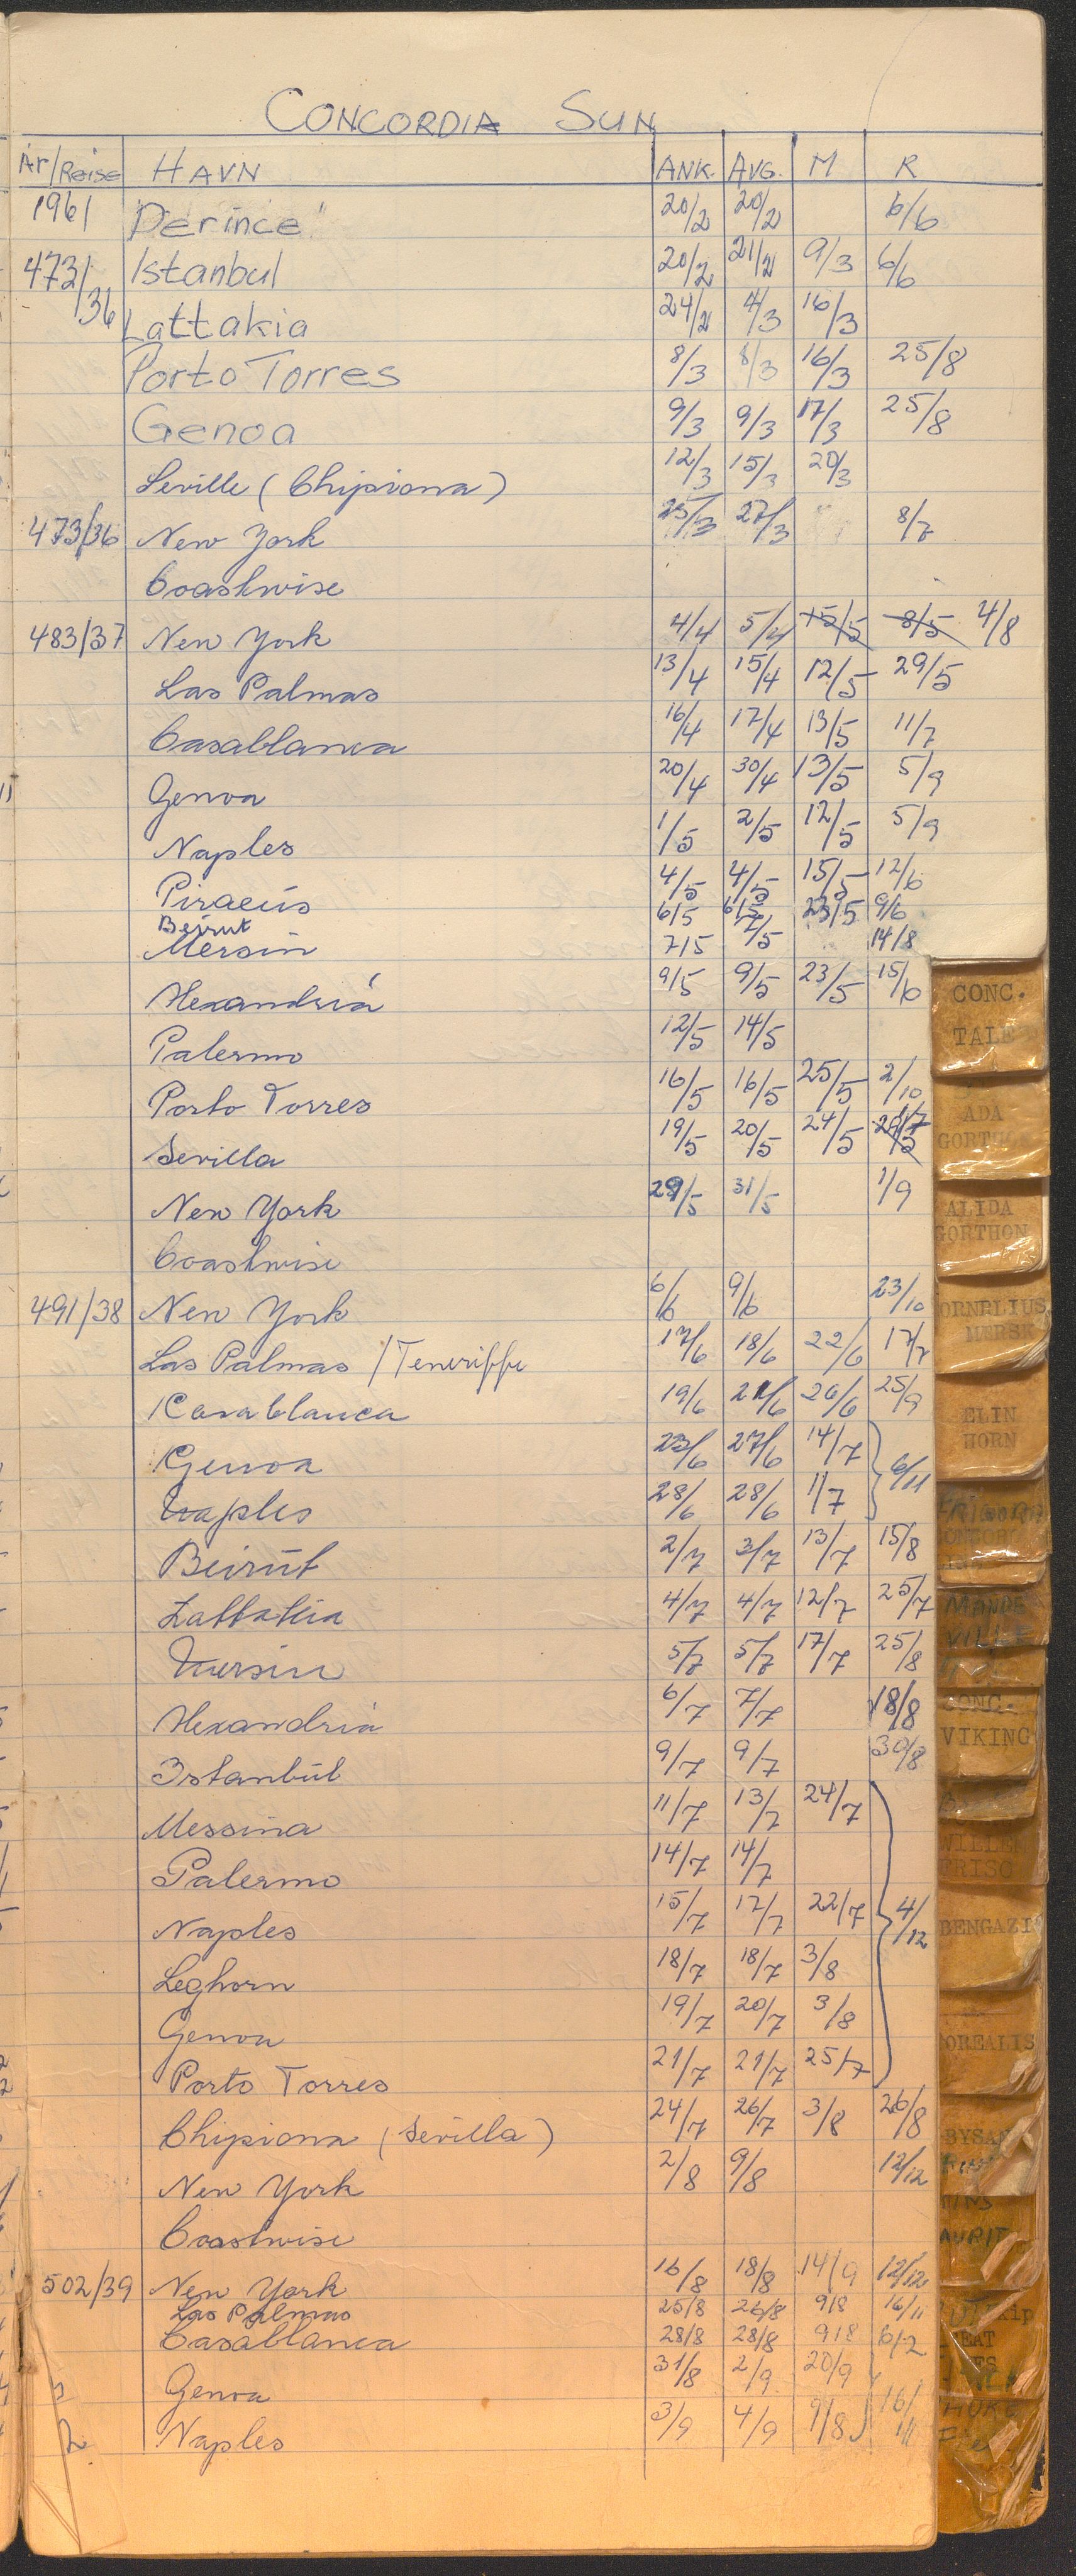 CONCORDIA SUN
År/Reise HAVN ANK. AVG. M R
1961 "Derince" 20/2 20/2 6/6
473/36 Istanbul 20/2 21/2 9/3 6/6
Lattakia 24/2 4/3 16/3
Porto Torres 8/3 8/3 16/3 25/8
Genoa 9/3 9/3 17/3 25/8
Seville (Chipiona) 12/3 15/3 20/3
473/36 New York 25/3 27/3 8/7
Coastwise
483/37 New York 4/4 5/4 15/5 8/5 4/8
Las Palmas 13/4 15/4 12/5 29/5
Casablanca 16/4 17/4 13/5 11/7
Genoa 20/4 30/4 13/5 5/9
Naples 1/5 2/5 12/5 5/9
Piraeus 4/5 4/5 15/5 12/6
Beirut 6/5 6/5 23/5 9/6
Mersin 7/5 7/5 14/8
Alexandria 9/5 9/5 23/5 15/6
Palermo 12/5 14/5
Porto Torres 16/5 16/5 25/5 2/10
Sevilla 19/5 20/5 24/5
New York 29/5 31/5 1/9
Coastwise
491/38 New York 6/6 9/6 23/10
Las Palmas / Teneriffe 17/6 18/6 22/6 17/7
Casablanca 19/6 21/6 26/6 25/9
Genoa 23/6 27/6 14/7 6/11
Naples 28/6 28/6 1/7
Beirut 2/7 3/7 13/7 15/8
Lattakia 4/7 4/7 12/7 25/7
Mersin 5/7 5/7 17/7 25/8
Alexandria 6/7 7/7 18/8
Istanbul 9/7 9/7 30/8
Messina 11/7 13/7 24/7
Palermo 14/7 14/7
Naples 15/7 17/7 22/7 4/12
Leghorn 18/7 18/7 3/8
Genoa 19/7 20/7 3/8
Porto Torres 21/7 21/7 25/7
Chipiona (Sevilla) 24/7 26/7 3/8 26/8
New York 2/8 9/8 12/12
Coastwise
502/39 New York 16/8 18/8 14/9 12/12
Las Palmas 25/8 26/8 9/8 16/11
Casablanca 28/8 28/8 9/8 6/2
Genoa 31/8 2/9 20/9
Naples 3/9 4/9 9/8 16/1
CONC.
TALE
ADA
GORTHON
ALIDA
GORTHON
ORNRLIUS
MERSK
ELIN
HORN
MANDE
VILLE
CONC.
VIKING
WILLEM
FRISO
BENGAZI
OREALIS